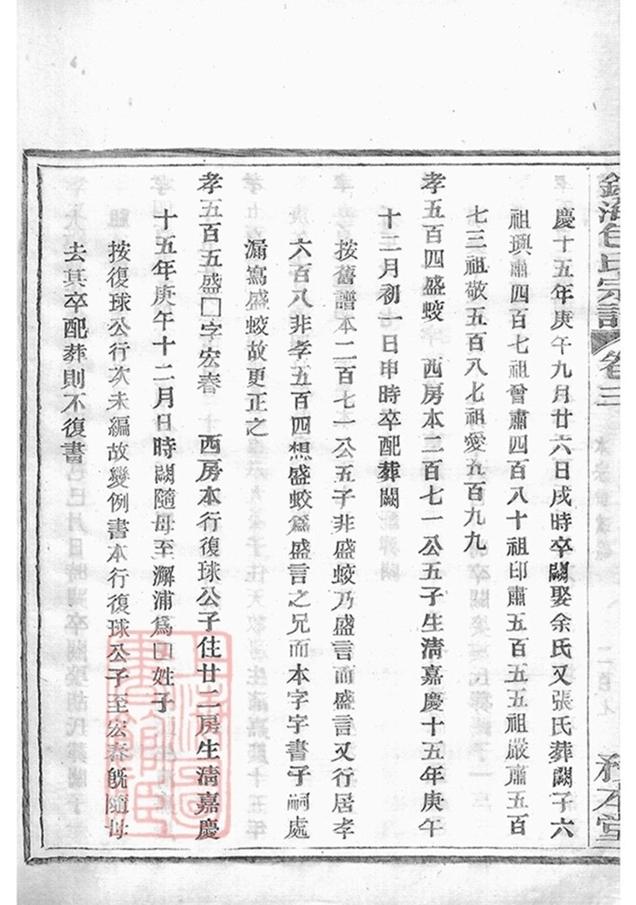 宗譜 卷三
慶十五年庚午九月廿六日戌時卒闕娶余氏又張氏葬闕子六
祖興肅四百七祖曾肅四百八十祖印肅五百五五祖嚴肅五百
七三祖敬五百八七祖愛五百九九
孝五百四盛蛟 西房本二百七一公五子生淸嘉慶十五年庚午
十二月初一日申時卒配葬闕
按舊譜本二百七一公五子非盛蛟乃盛言而盛言又行居孝
六百八非孝五百四想盛蛟爲盛言之兄而本字字書子嗣處
漏寫盛蛟故更正之
孝五百五盛口字宏春 西房本行復球公子住廿二房生淸嘉慶
十五年庚午十二月日時闕隨母至澥浦爲口姓子
按復球公行次未編故變例書本行復球公子至宏春旣隨母
去其卒配葬則不復書